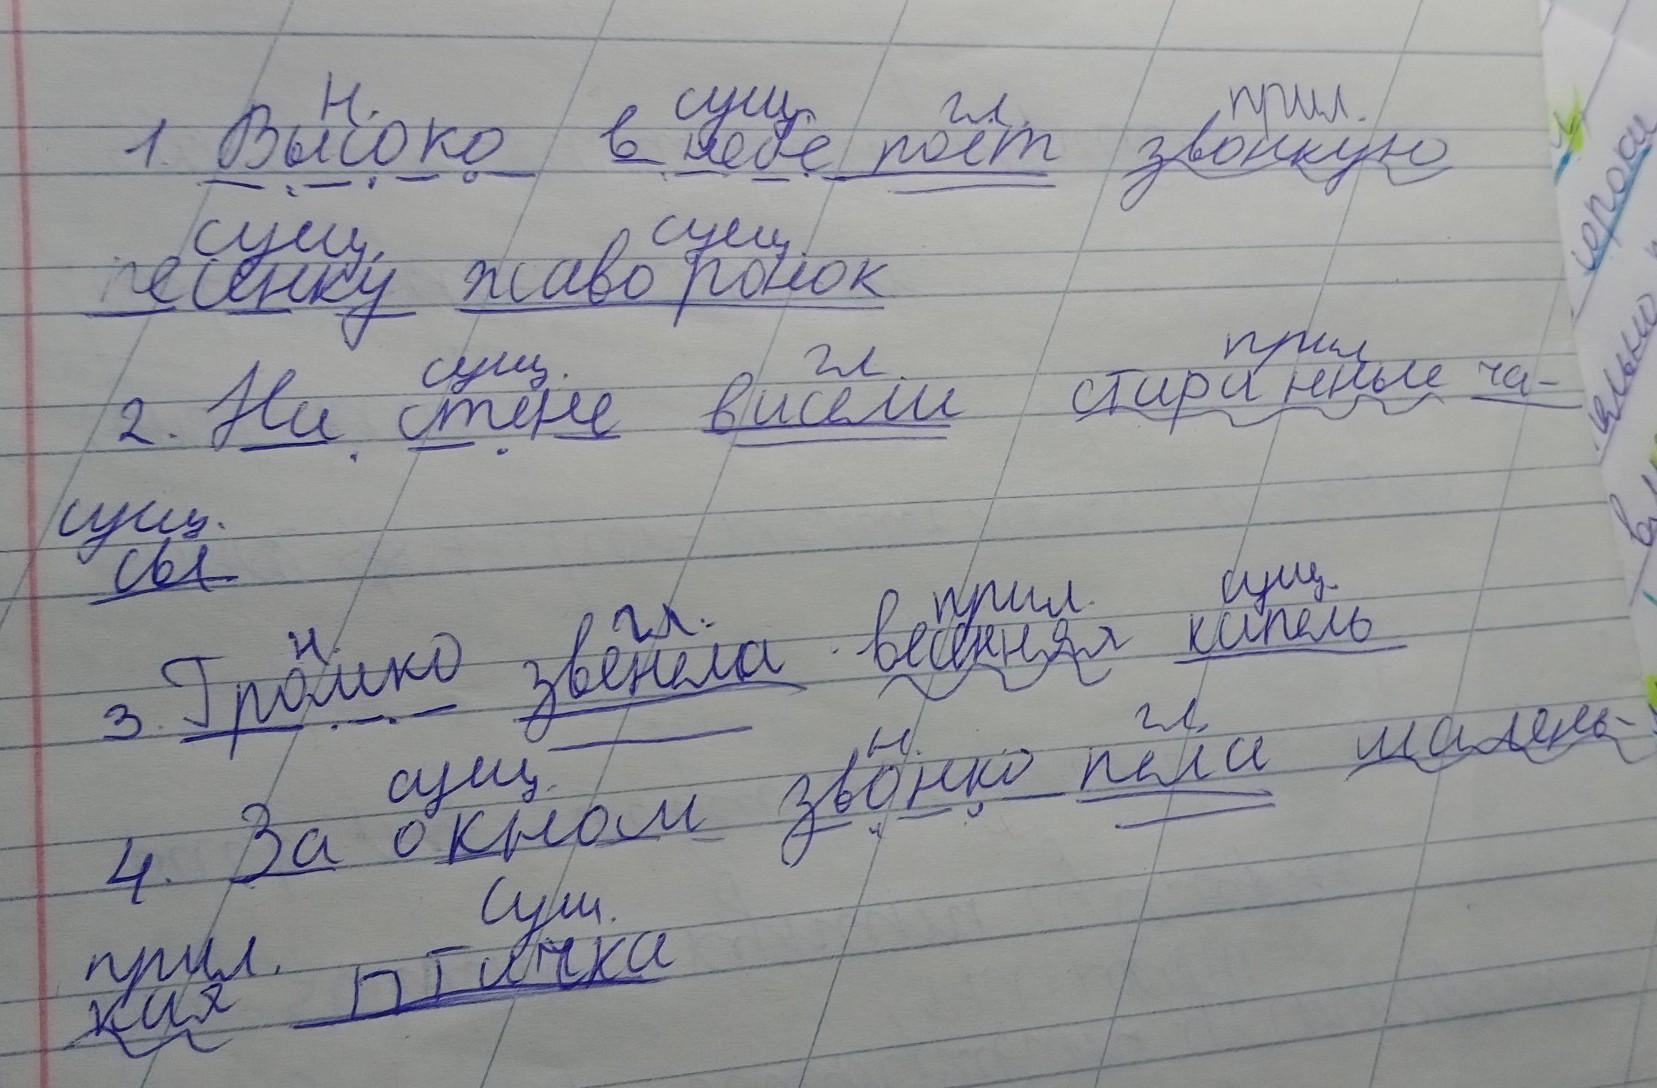 н. сущ. гл. прил.
1. Высоко в небе поёт звонкую
сущ. сущ.
песенку жаворонок
сущ. гл. прил.
2. На стене висели старинные ча-
сущ.
сы
н. гл. прил. сущ.
3. Громко звенела весенняя капель
сущ. н. гл.
4. За окном звонко пела малень-
прил. сущ.
кая птичка